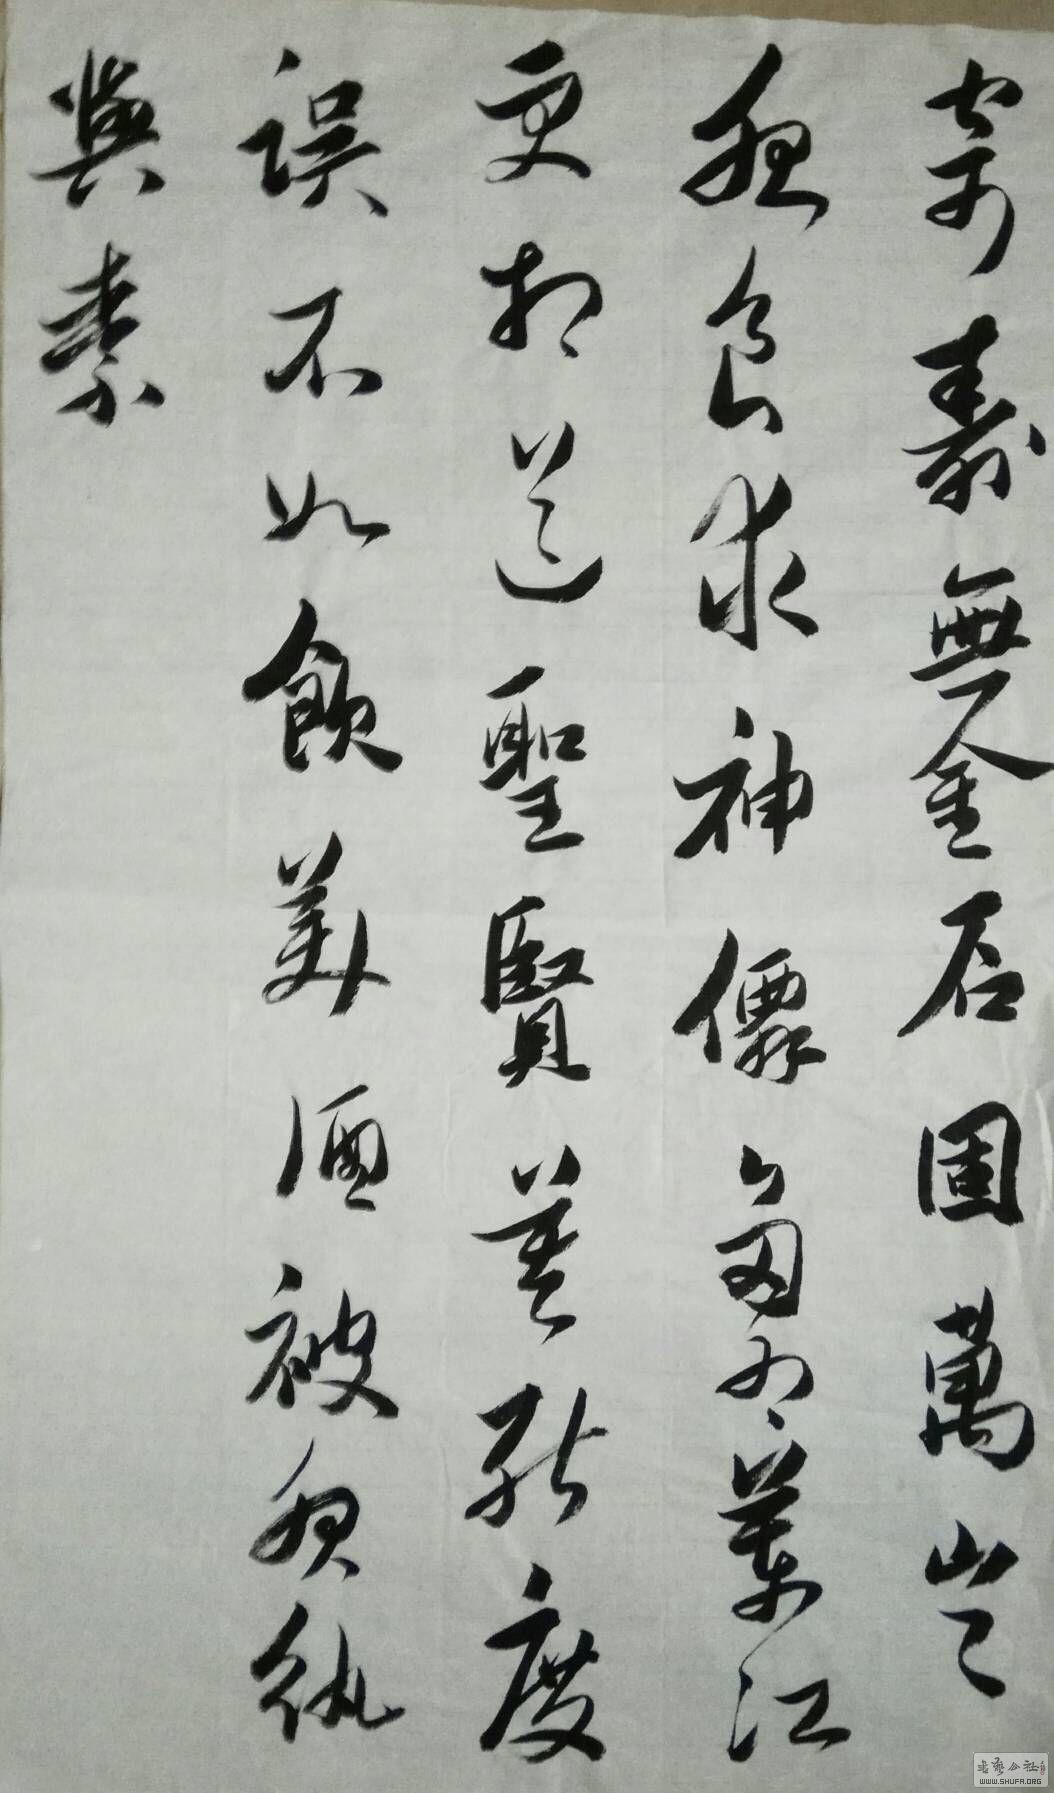 寄壽無金石固萬岁
服食求神僊多為藥江
更相送聖賢莫能度
誤不如飲美酒被服紈
與素
書藝公社
WWW.SHUFA.ORG